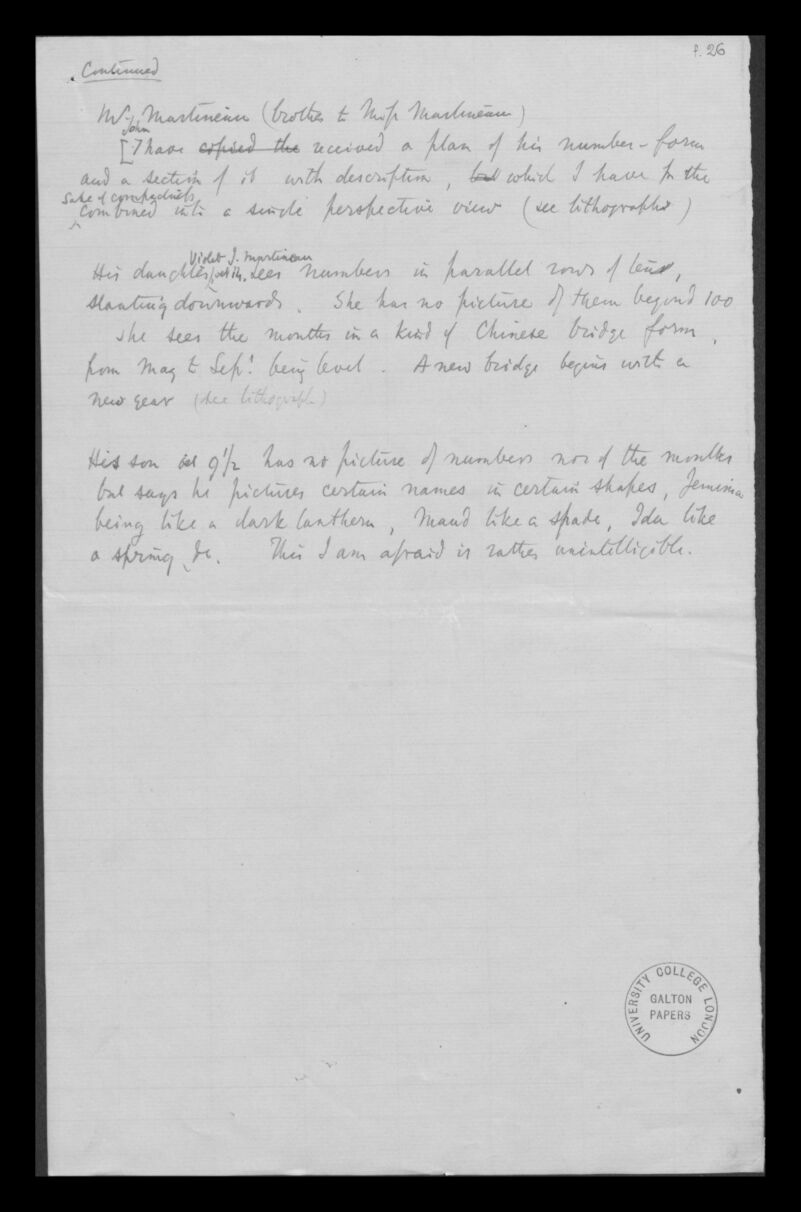 f. 26
Continued
Mr. John Martineau (brother to Miss Martineau)
[I have copied the received a plan of his number-form
and a section of it with description, but which I have for the
sake of compactness combined into a single perspective view (see lithographs)
His daughter, Violet J. Martineau, sees numbers in parallel rows of tens,
slanting downwards. She has no picture of them beyond 100
she sees the months in a kind of Chinese bridge form,
from May to Sept. being level. A new bridge begins with a
new year (see lithograph)
His son æt 9 1/2 has no picture of numbers nor of the months
but says he pictures certain names in certain shapes, Jemima
being like a dark lanthern, Maud like a spade, Ida like
a spring, &c. This I am afraid is rather unintelligible.
UNIVERSITY COLLEGE LONDON
GALTON
PAPERS